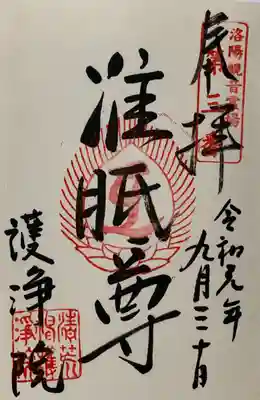 洛陽観音霊場
第三番
奉拝
令和元年
九月三十日
准胝尊
護浄院
清荒神護淨院